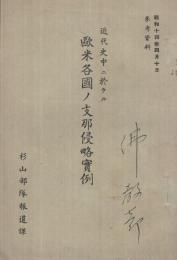 昭和十四年四月十日
参考資料
近代史中ニ於ケル
歐米各國ノ支那侵略實例
杉山部隊報道課